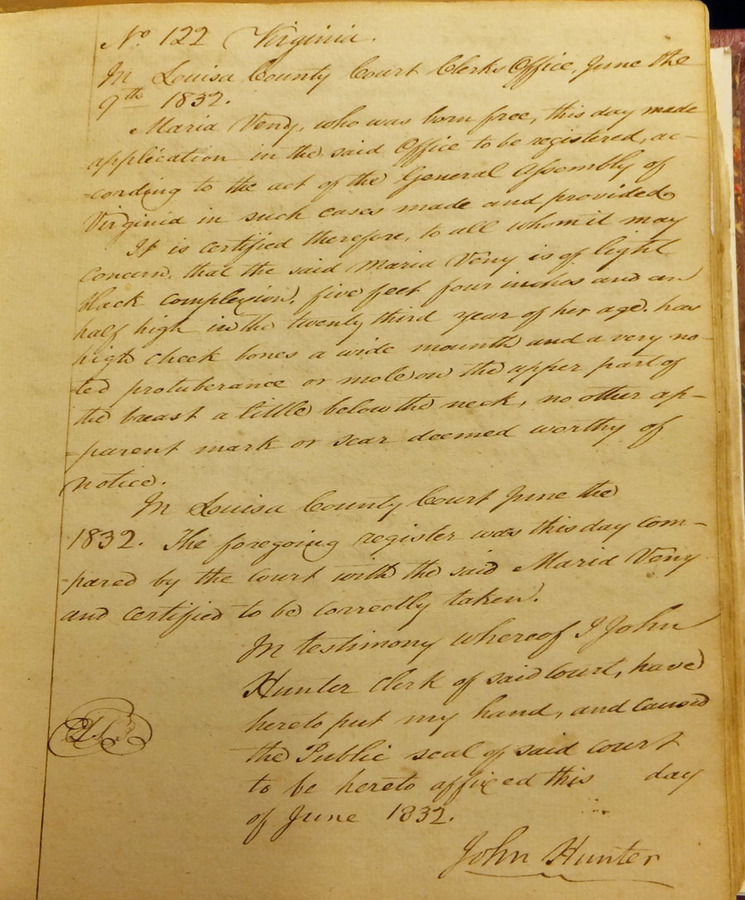 No 122 Virginia.
In Louisa County Court Clerks Office, June the
9th 1832.
Maria Veny, who was born free, this day made
application in the said Office to be registered, ac-
-cording to the act of the General Assembly of
Virginia in such cases made and provided
It is certified therefore, to all whom it may
concern, that the said Maria Veny is of light
black complexion, five feet four inches and an
half high in the twenty third year of her age, has
high cheek bones a wide mounth and a very no-
-ted protuberance or mole on the upper part of
the breast a little below the neck, no other ap-
-parent mark or scar deemed worthy of
notice.
In Louisa County Court June the
1832. The foregoing register was this day com-
-pared by the court with the said Maria Veny
and certified to be correctly taken.
In testimony whereof I John
Hunter Clerk of said court, have
hereto put my hand, and caused
the Public seal of said court
to be hereto affixed this day
of June 1832.
John Hunter